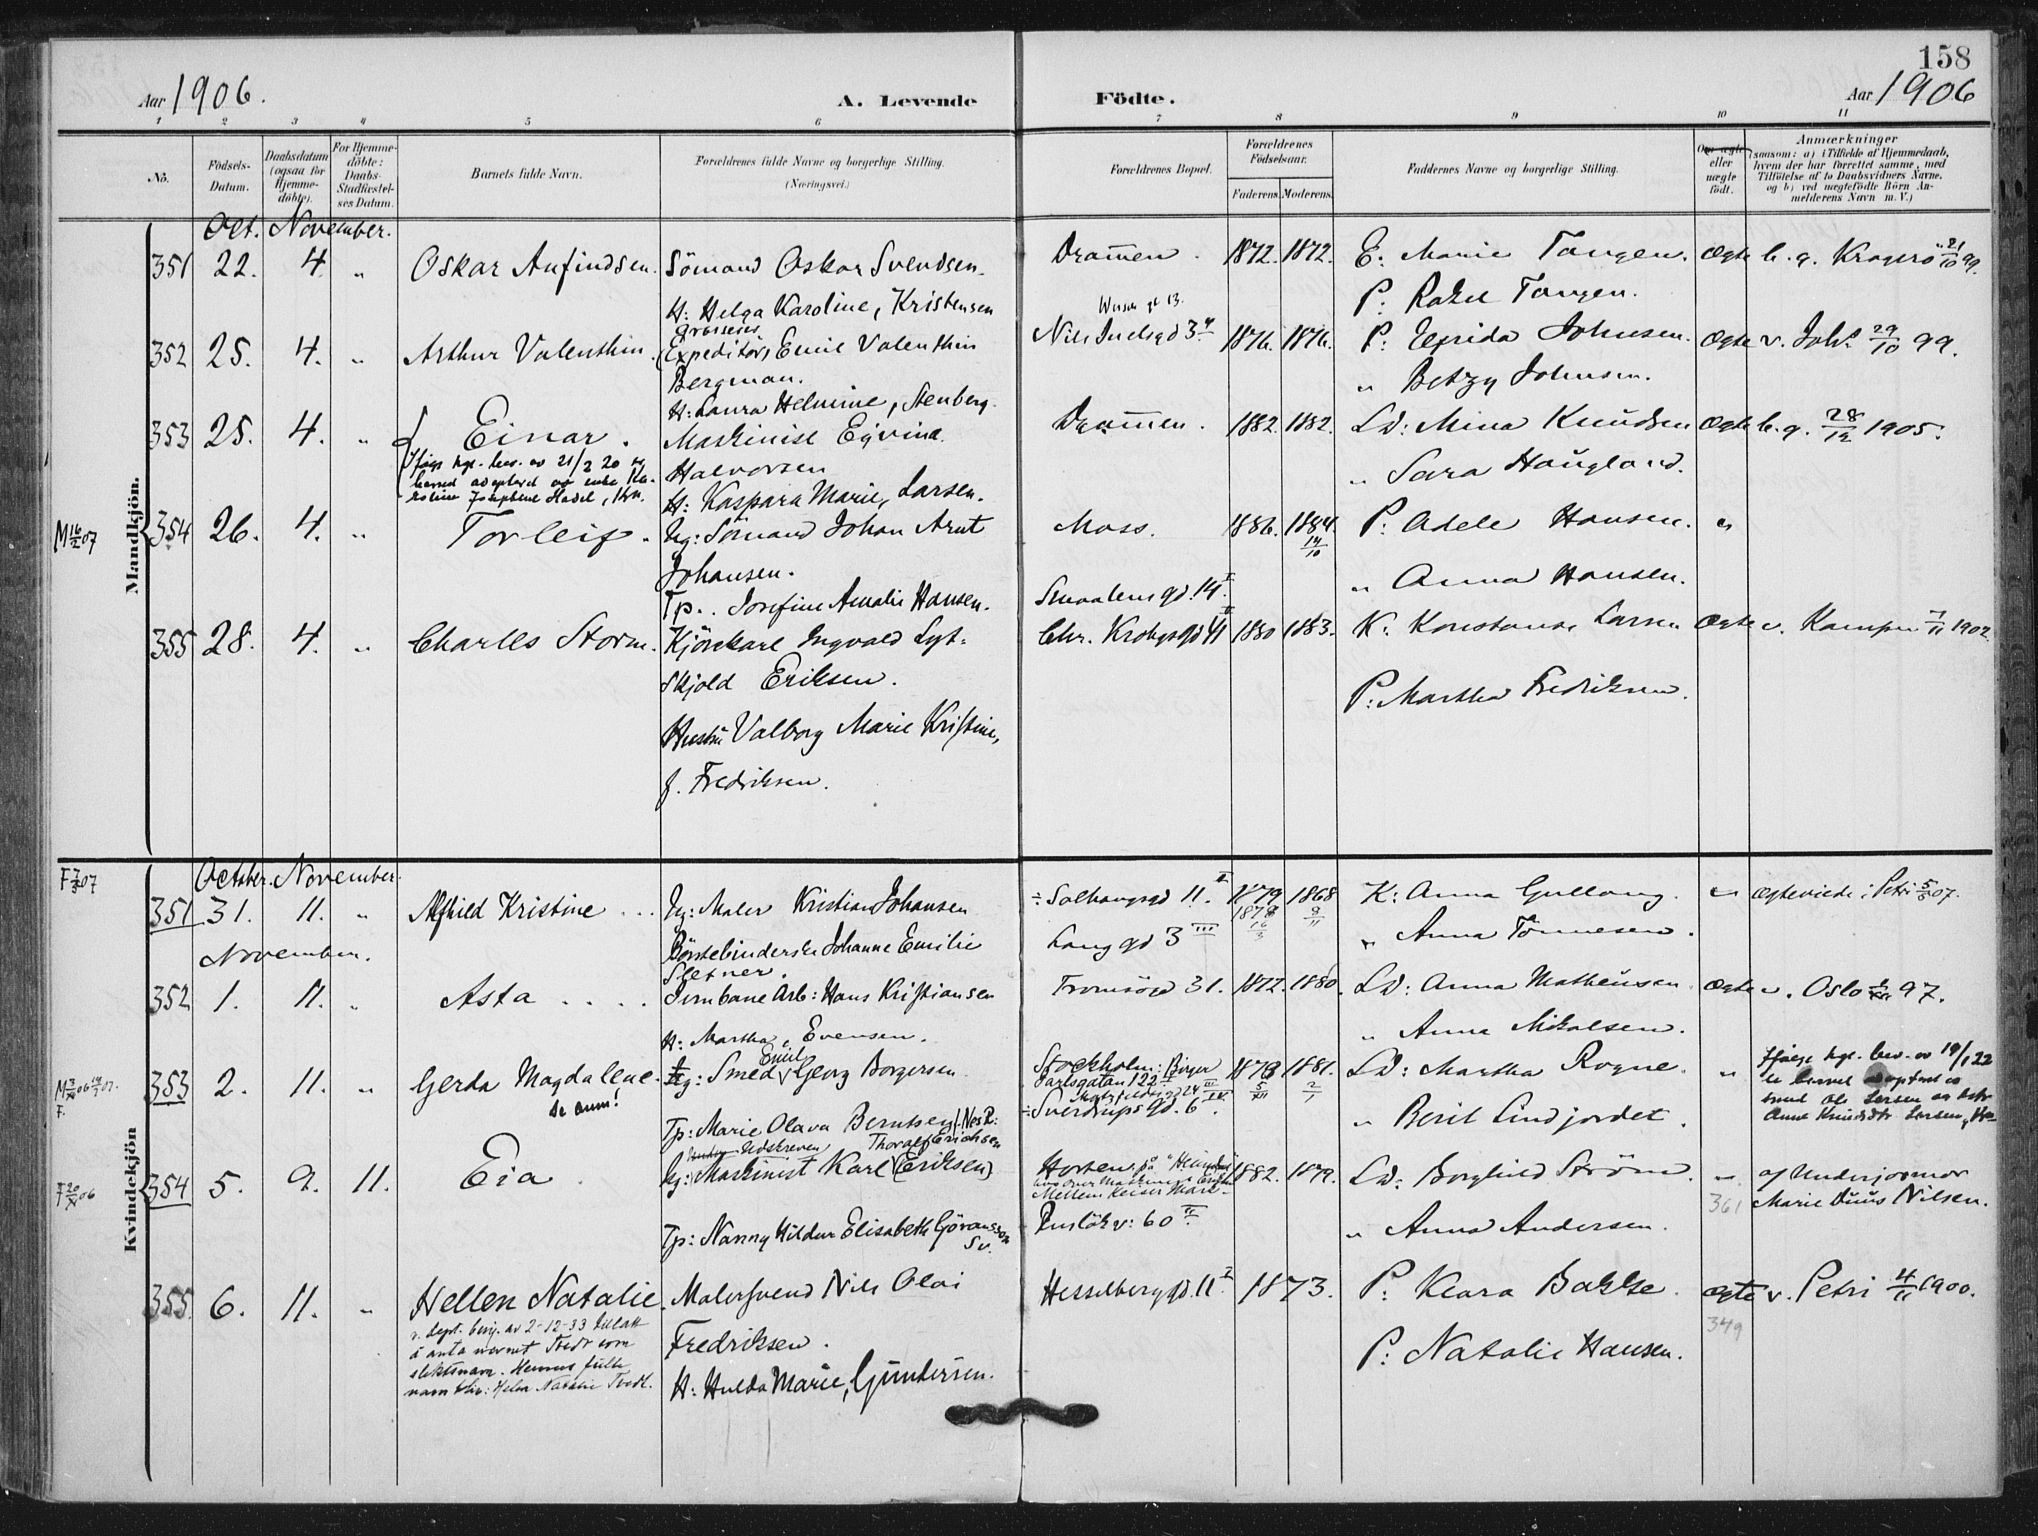 158
Aar 1906. A. Levende Födte. Aar 1906
1 2 3 4 5 6 7 8 9 10 11
No. Födsels-Datum. Daabsdatum (ogsaa for Hjemme-döbte). For Hjemme-döbte: Daabs-Stadfæstel-ses Datum. Barnets fulde Navn. Forældrenes fulde Navne og borgerlige Stilling. (Næringsvei.) Forældrenes Bopæl. Forældrenes Födselsaar. Faderens. Moderens. Faddernes Navne og borgerlige Stilling. Om ægte eller uægte födt. Anmærkninger (saasom: a) i Tilfælde af Hjemmedaab, hvem der har forrettet samme, med Tilföielse af to Daabsvidners Navne, og b) ved uægtefödte Börn An-melderens Navn m. V.)
Mandkjön.
Oct. November.
351 22. 4. " Oskar Anfindsen. Sömand Oskar Svendsen. Drammen. 1872. 1872. E: Marie Tangen. Ægte b. g. Kragerö 21/10 99.
H: Helga Karoline, Kristensen P: Rakel Tangen.
Grosseres
352 25. 4. " Arthur Valenthin. (Expeditör) Emil Valenthin Nils Juelsgd 3 1876. 1876. P: Johnsen. Ægte v. Joh. 29/10 99.
Bergman. " Betzy Johnsen.
H: Laura Helmine, Stenberg.
353 25. 4. " Einar. Maskinist Eyvind Drammen. 1882. 1882. Ld: Mina Knudsen Ægte b. g. 28/12 1905.
Ifølge kgl. bev. av 21/2 20 er
Halvorsen " Sara Haugland.
barnet adopteret av enke Ka-
roline Josephine Hadel, Kra.
H: Kaspara Marie, Larsen.
M 16/2 07 354 26. 4. " Torleif. Ug: Sömand Johan Arnt Moss. 1886. 1884. 14/10 P: Adele Hansen. "
Johansen. " Anna Hansen.
Tp. Josefine Amalie Hansen. Smaalensgd. 14 I
355 28. 4. " Charles Storm. Kjörekarl Ingvald Syt- Chr. Krohgsgd 41 II 1880 1883. K: Konstanse Larsen Ægte v. Kampen 7/11 1902
skjold Eriksen. P: Martha Fredriksen.
Hustru Valborg Marie Kristine,
f. Fredriksen.
Kvindekjön
October. November.
F 7/3 07
351 31. 11. " Alfhild Kristine Ug: Maler Kristian Johansen ÷ Solhaugsgd 11. I 1879 1868 K: Anna Gullaug. " Ægteviede i Petri 5/5 07.
1878 16/3 8/11
November. Börstebinderske Johanne Emilie Langgd 3 III " Anna Tönnesen.
Sletner.
352 1. 11. " Asta Jernbane Arb: Hans Kristiansen Tromsögd 31. 1872. 1880. Ld: Anna Matheusen Ægte v. Oslo 97.
H: Martha, Evensen. " Anna Nikolsen.
353 2. 11. " Gerda Magdalene. Ug: Smed Emil Georg Borgersen Stockholm: Birger Jarlsgatan 122 1873 1881. Ld: Martha Rogne. " Ifølge kgl. bev. av 19/1 22
se anm! 5/XII 2/1 er barnet adopteret av
smed Ole Larsen og hustr
Anna Knudsdtr Larsen, Kra
Tp: Marie Olava Berntsen ÷ Sverdrupsgd. 6 IV. " Berit Lindjordet.
F 20/XI 06 354 5. 9. 11. Eia Ug: Maskinist Karl Thoralf Erichsen (Eriksen) Horten: på "Heimdal" 1882. 1879. Ld: Borghild Ström. " af Underjormor
361 Marie Duus Nilsen.
Tp: Nanny Hildur Elisabeth Göransson Puslökv: 60 II. " Anna Andersen.
Sv.
355. 6. 11. " Hellen Natalie. Malersvend Nils Olai Hesselberggd. 11. I 1873. P: Klara Bakke. Ægte v. Petri 4/11 1900.
349
v. Dept. bevj. av 2-12-33 tillatt
å anta navnet Tvedt som
slektsnavn. Hennes fulle
navn blir: Helen Natalie Tvedt.
Fredriksen. P: Natalie Hansen.
H: Hulda Marie, Gundersen.